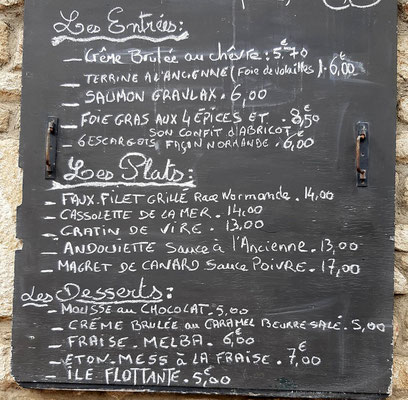 Les Entrées:
_ Crême Brulée au chêvre: 5€70
_ TERRINE A L'ANCIENNE (Foie de volailles). 6,00€
_ SAUMON GRAVLAX. 6,00
_ FOIE GRAS AUX 4 ÉPICES ET . 8€50
SON CONFIT d'ABRICOT
_ 6 ESCARGOTS FAÇON NORMANDE. 6,00€
Les Plats:
_ FAUX.FILET GRILLÉ Race Normande. 14,00
_ CASSOLETTE DE LA MER. 14,00
_ GRATIN DE VIRE. 13,00
_ ANDOUIETTE Sauce à l'Ancienne. 13,00
_ MAGRET DE CANARD Sauce POIVRE. 17,00
Les Desserts:
_ MOUSSE au CHOCOLAT. 5,00
_ CRÈME BRULÉE au CARAMEL BEURRE SALÉ. 5,00
_ FRAISE. MELBA. 6,00€
_ ETON-MESS à LA FRAISE. 7,00€
_ ÎLE FLOTTANTE. 5,00€